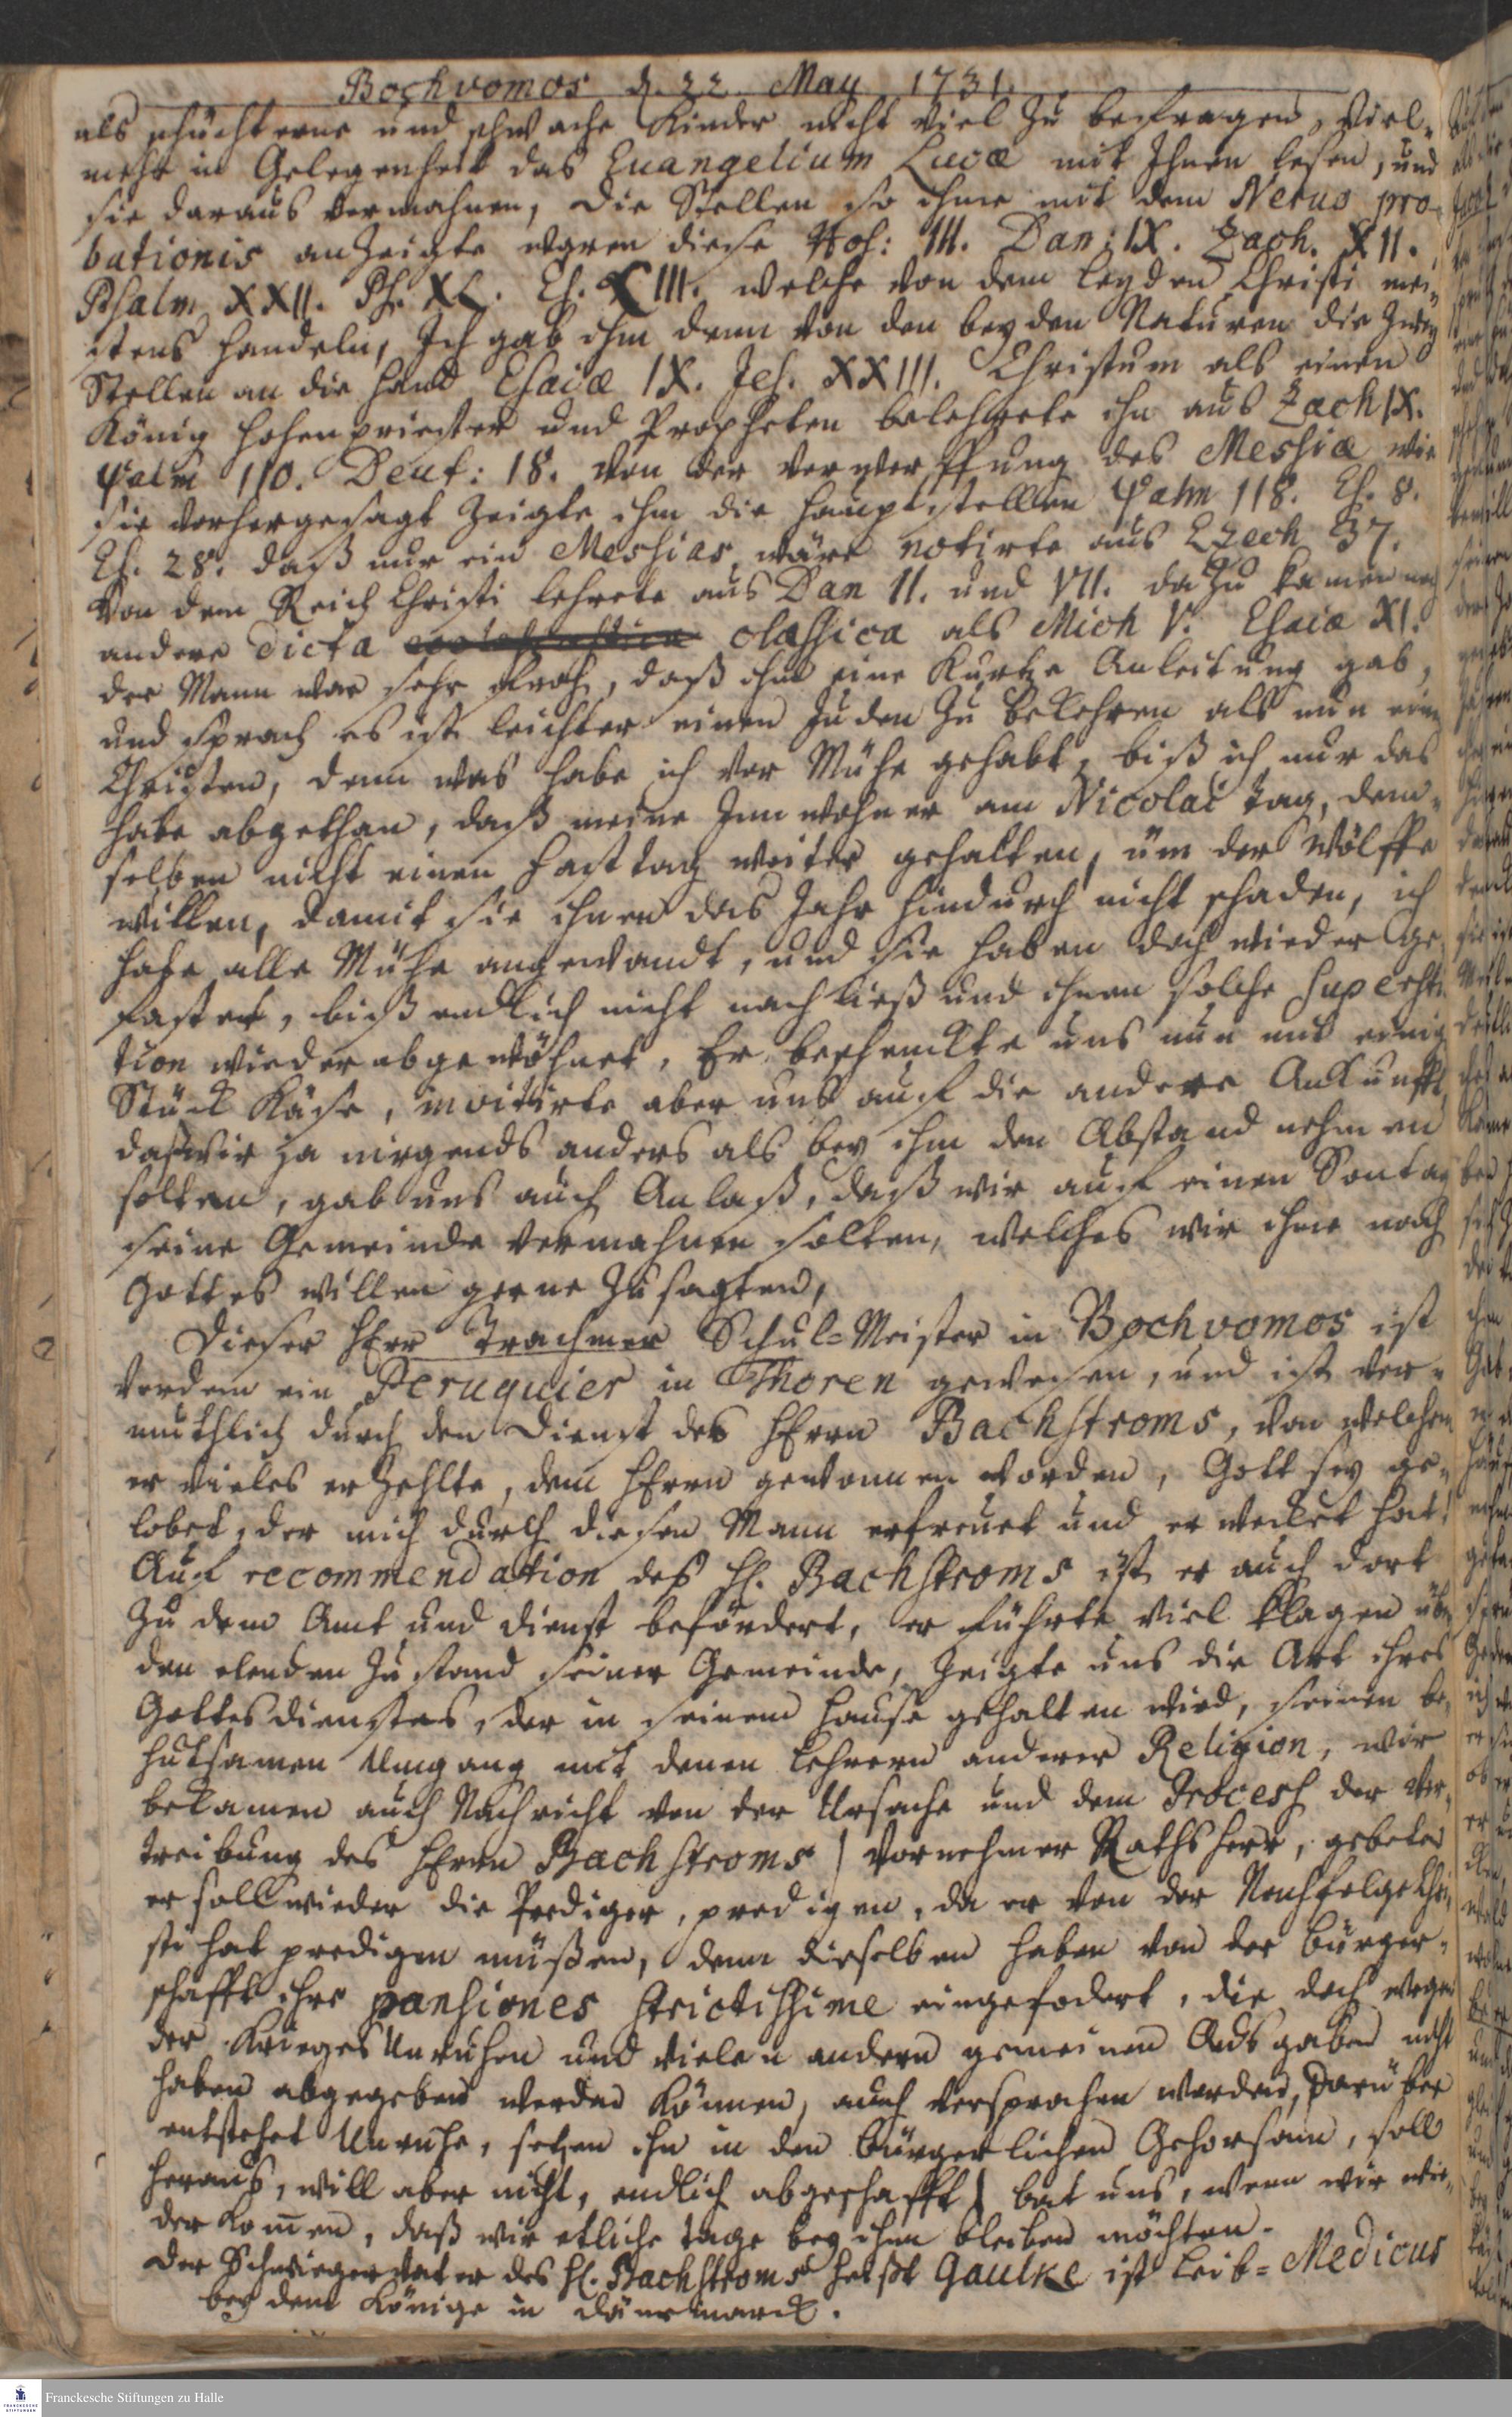 Bochvomos d. 22. May 1731.
als schüchterne und schwache Kinder nicht viel zu befragen, viel-
mehr in Gelegenheit das Euangelium Lucæ mit Ihnen lesen, und
sie daraus vermahnen, die Stellen so ihme mit dem Nervo pro-
bationis anzeigte waren diese Hos: III. Dan: IX. Zach. XII.
Psalm XXII. Ps. XL. Es. LIII. welche von dem Leyden Christi mei-
stens handeln, Ich gab ihm denn von den beyden Naturen die zwey
Stellen an die Hand Esaiæ IX. Jes. XXIII. Christum als einen
König Hohenpriester und Propheten belehrete ihn aus Zach IX.
Psalm 110. Deut: 18. von der Verwerffung des Messiæ wie
sie vorhergesagt zeigte ihm die Hauptstellen Psalm 118. Es. 8.
Es. 28. daß nur ein Messias wäre notirte aus Ezech 37.
von dem Reich Christi lehrete aus Dan II. und VII. dazu kamen noch
andere dicta classica als Mich V. Esaiæ XI.
der Mann war sehr froh, daß ihm eine kurtze Anleitung gab,
und sprach es ist leichter einen Juden zu bekehren als nun einen
Christen, denn was habe ich vor Mühe gehabt, biß ich nur das
habe abgethan, daß meine Innwohner am Nicolai tag, dem-
selben nicht einen Fasttag weiter gehalten, üm der Wölffe
willen, damit sie ihnen das Jahr hindurch nicht schaden, ich
habe alle Mühe angewandt, und sie haben doch wieder ge-
fastet, biß endlich nicht nachließ und ihnen solche supersti-
tion wieder abgewöhnet. Er beschenckte uns nun mit einig
Stück Käse, invitirte aber uns auf die andere Ankunfft,
daß wir ja nirgends anders als bey ihm den Abstand nehmen
solten, gab uns auch Anlaß, daß wir auf einen Sontag
seine Gemeinde vermahnen solten, welches wir ihme nach
Gottes willen gerne zusagten,
Dieser Herr Trachmer Schul-Meister in Bochvomos ist
vordem ein Peruquier in Thoren gewesen, und ist ver-
muthlich durch den Dienst des Herrn Bachstroms, von welchem
er vieles erzehlte, dem Herrn gewonnen worden, Gott sey ge-
lobet, der mich durch diesen Mann erfreuet und erwecket hat!
Auf recommendation des H. Bachstroms ist er auch dort
zu dem Amt und Dienst befördert, er führte viel Klagen über
den elenden Zustand seiner Gemeinde, zeigte uns die Art ihres
Gottesdienstes, der in seinem Hause gehalten wird, seinen be-
hutsamen Umgang mit denen Lehrern anderer Religion, wir
bekamen auch Nachricht von der Ursache und dem Process der Ver-
treibung des Herrn Bachstroms / vornehmer Rathsherr, gebeten
er soll wieder die Prediger, predigen, da er von der Nachfolge Chri-
sti hat predigen müßen, denn dieselben haben von der Bürger-
schafft ihre pansiones strictissime eingefodert, die doch wegen
der Krieges Unruhen und vielen andern gemeinen Ausgaben nicht
haben abgegeben werden können, auch versprochen werden, darüber
entstehet Unruhe, setzen ihn in den bürgerlichen Gehorsam, soll
heraus, will aber nicht, endlich abgeschafft / bat uns, wenn wir wie-
der kommen, daß wir etliche tage bey ihm bleiben möchten.
Der Schwieger Vater des H. Bachstroms heißt Gaulke ist Leib-Medicus
bey dem Könige in Dännemarck.
Franckesche Stiftungen zu Halle